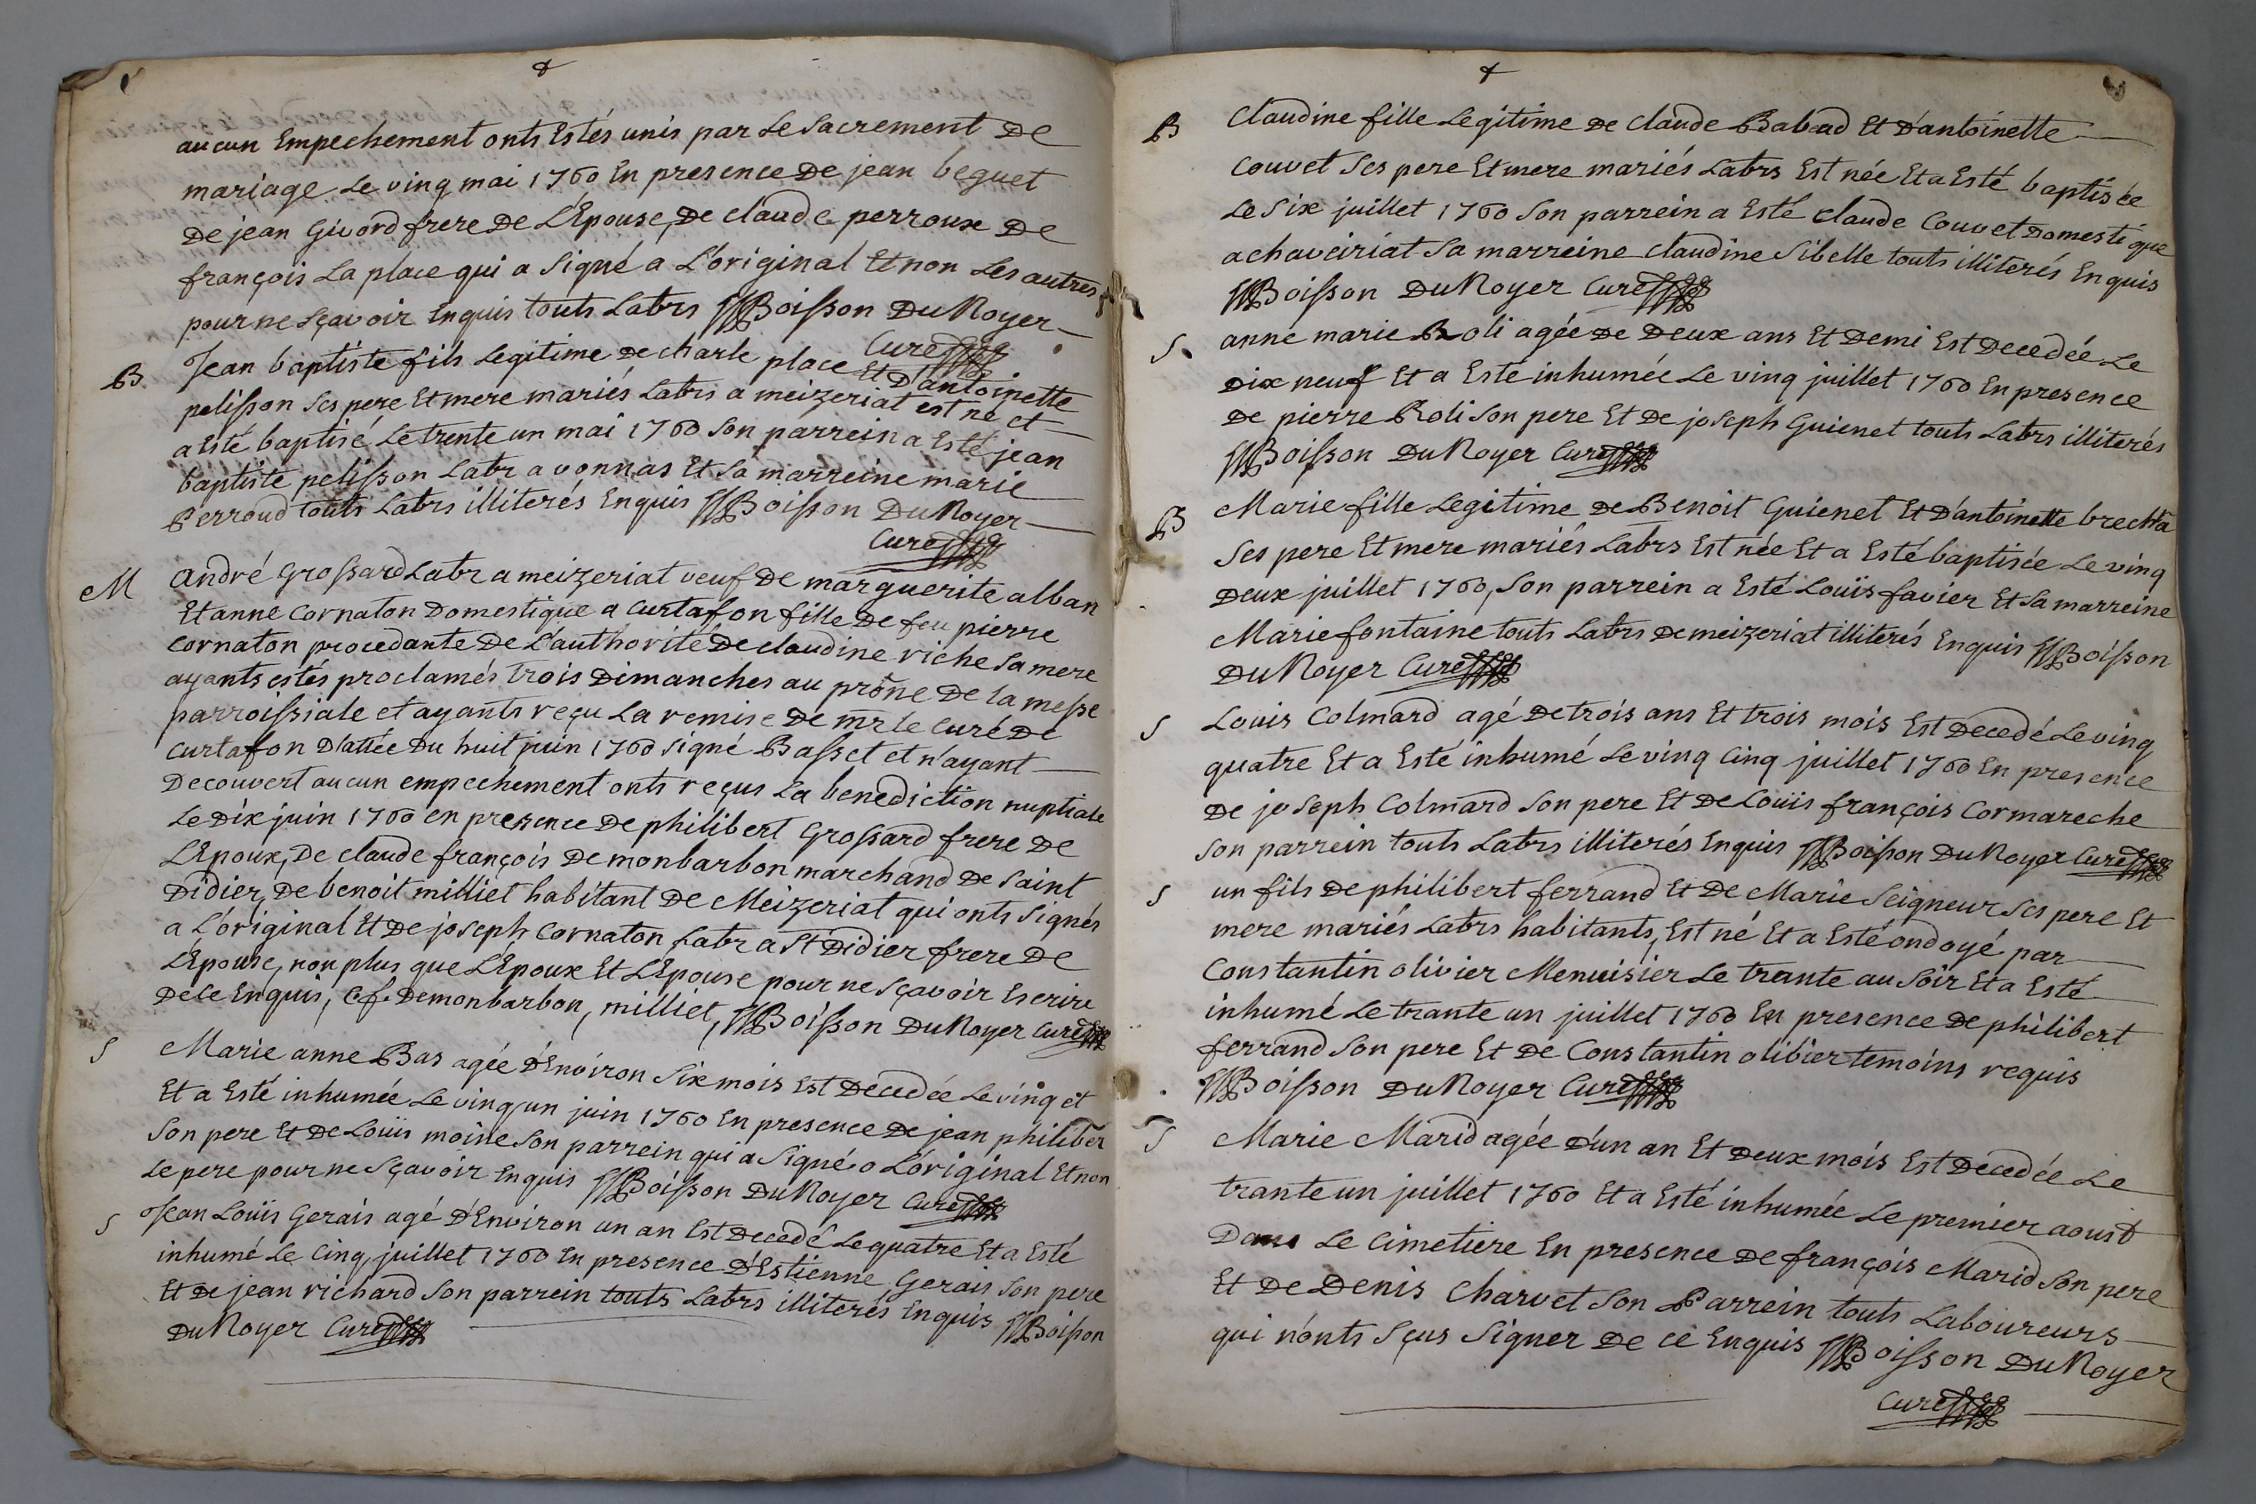 aucun Empechement onts Estés unis par Le Sacrement De
mariage Le vinq mai 1760 En presence De jean beguet
De jean Givord frere De L'Epouse, De claude perroux De
françois La place qui a Signé a L'original Et non Les autres
pour ne Sçavoir Enquis touts Labrs Boisson Du Noyer
Curé
B
Jean baptiste fils Legitime De charle place Et D'antoinette
pelisson Ses pere Et mere mariés Labrs a meizeriat est né et
a Esté baptisé Le trente un mai 1760 Son parrein a Esté jean
baptiste pelisson Labr a vonnas Et Sa marreine marie
Perroud touts Labrs illiterés Enquis Boisson Du Noyer
Curé
M
André Grossard Labr a meizeriat veuf De marguerite alban
Et anne Cornaton Domestique a Curtafon fille De feu pierre
Cornaton procedante De L'authorité De claudine riche Sa mere
ayants estés proclamés trois Dimanches au prône De la messe
parroissiale et ayants reçu La remise De mr le Curé De
Curtafon D'attée Du huit juin 1760 Signé Basset et n'ayant
Decouvert aucun empechement onts reçus La benediction nuptiale
Le Dix juin 1760 en presence De philibert Grossard frere De
L'Epoux, De claude françois De monbarbon marchand De Saint
Didier, De benoit milliet habitant De Meizeriat qui onts Signés
a L'original Et De joseph Cornaton Labr a St Didier frere De
L'Epouse, non plus que L'Epoux Et L'Epouse pour ne Sçavoir Escrire
De ce Enquis, C. f. Demonbarbon, milliet, Boisson Du Noyer Curé
S
Marie anne Bas agée D'Environ Six mois Est Decedée Le vinq et
Et a Esté inhumée Le vinq un juin 1760 En presence De jean philiber
Son pere Et De Louïs moine Son parrein qui a Signé a L'original Et non
Le pere pour ne Sçavoir Enquis Boisson Du Noyer Curé
S
Jean Louïs Gerais agé D'Environ un an Est Decedé Le quatre Et a Esté
inhumé Le Cinq juillet 1760 En presence D'Estienne Gerais Son pere
Et De jean richard Son parrein touts Labrs illiterés Enquis Boisson
Du Noyer Curé
B
Claudine fille Legitime De claude Babad Et D'antoinette
Couvet Ses pere Et mere mariés Labrs Est née Et a Esté baptisée
Le Six juillet 1760 Son parrein a Esté Claude Couvet Domestique
a chaveiriat Sa marreine Claudine Sibelle touts illiterés Enquis
Boisson Du Noyer Curé
S
anne marie Roli agée De Deux ans Et Demi Est Decedée Le
Dix neuf Et a Esté inhumée Le vinq juillet 1760 En presence
De pierre Roli Son pere Et De joseph Guienet touts Labrs illiterés
Boisson Du Noyer Curé
B
Marie fille Legitime De Benoit Guienet Et D'antoinette brechta
Ses pere Et mere mariés Labrs Est née Et a Esté baptisée Le vinq
Deux juillet 1760, Son parrein a Esté Louïs favier Et Sa marreine
Marie fontaine touts Labrs De meizeriat illiterés Enquis Boisson
Du Noyer Curé
S
Louis Colmard agé De trois ans Et trois mois Est Decedé Le vinq
quatre Et a Esté inhumé Le vinq Cinq juillet 1760 En presence
De joseph Colmard Son pere Et De Louïs françois Cormareche
Son parrein touts Labrs illiterés Enquis Boisson Du Noyer Curé
S
un fils De philibert ferrand Et De Marie Seigneur Ses pere Et
mere mariés Labrs habitants, Est né Et a Esté ondoyé par
Constantin olivier Menuisier Le trante au Soir Et a Esté
inhumé Le trante un juillet 1760 En presence De philibert
ferrand Son pere Et De Constantin olibier temoins requis
Boisson Du Noyer Curé
S
Marie Marid agée D'un an Et Deux mois Est Decedée Le
trante un juillet 1760 Et a Esté inhumée Le premier aoust
Dans Le Cimetiere En presence De françois Marid Son pere
Et De Denis Charvet Son Parrein touts Laboureurs
qui n'onts Sçus Signer De ce Enquis Boisson Du Noyer
Curé